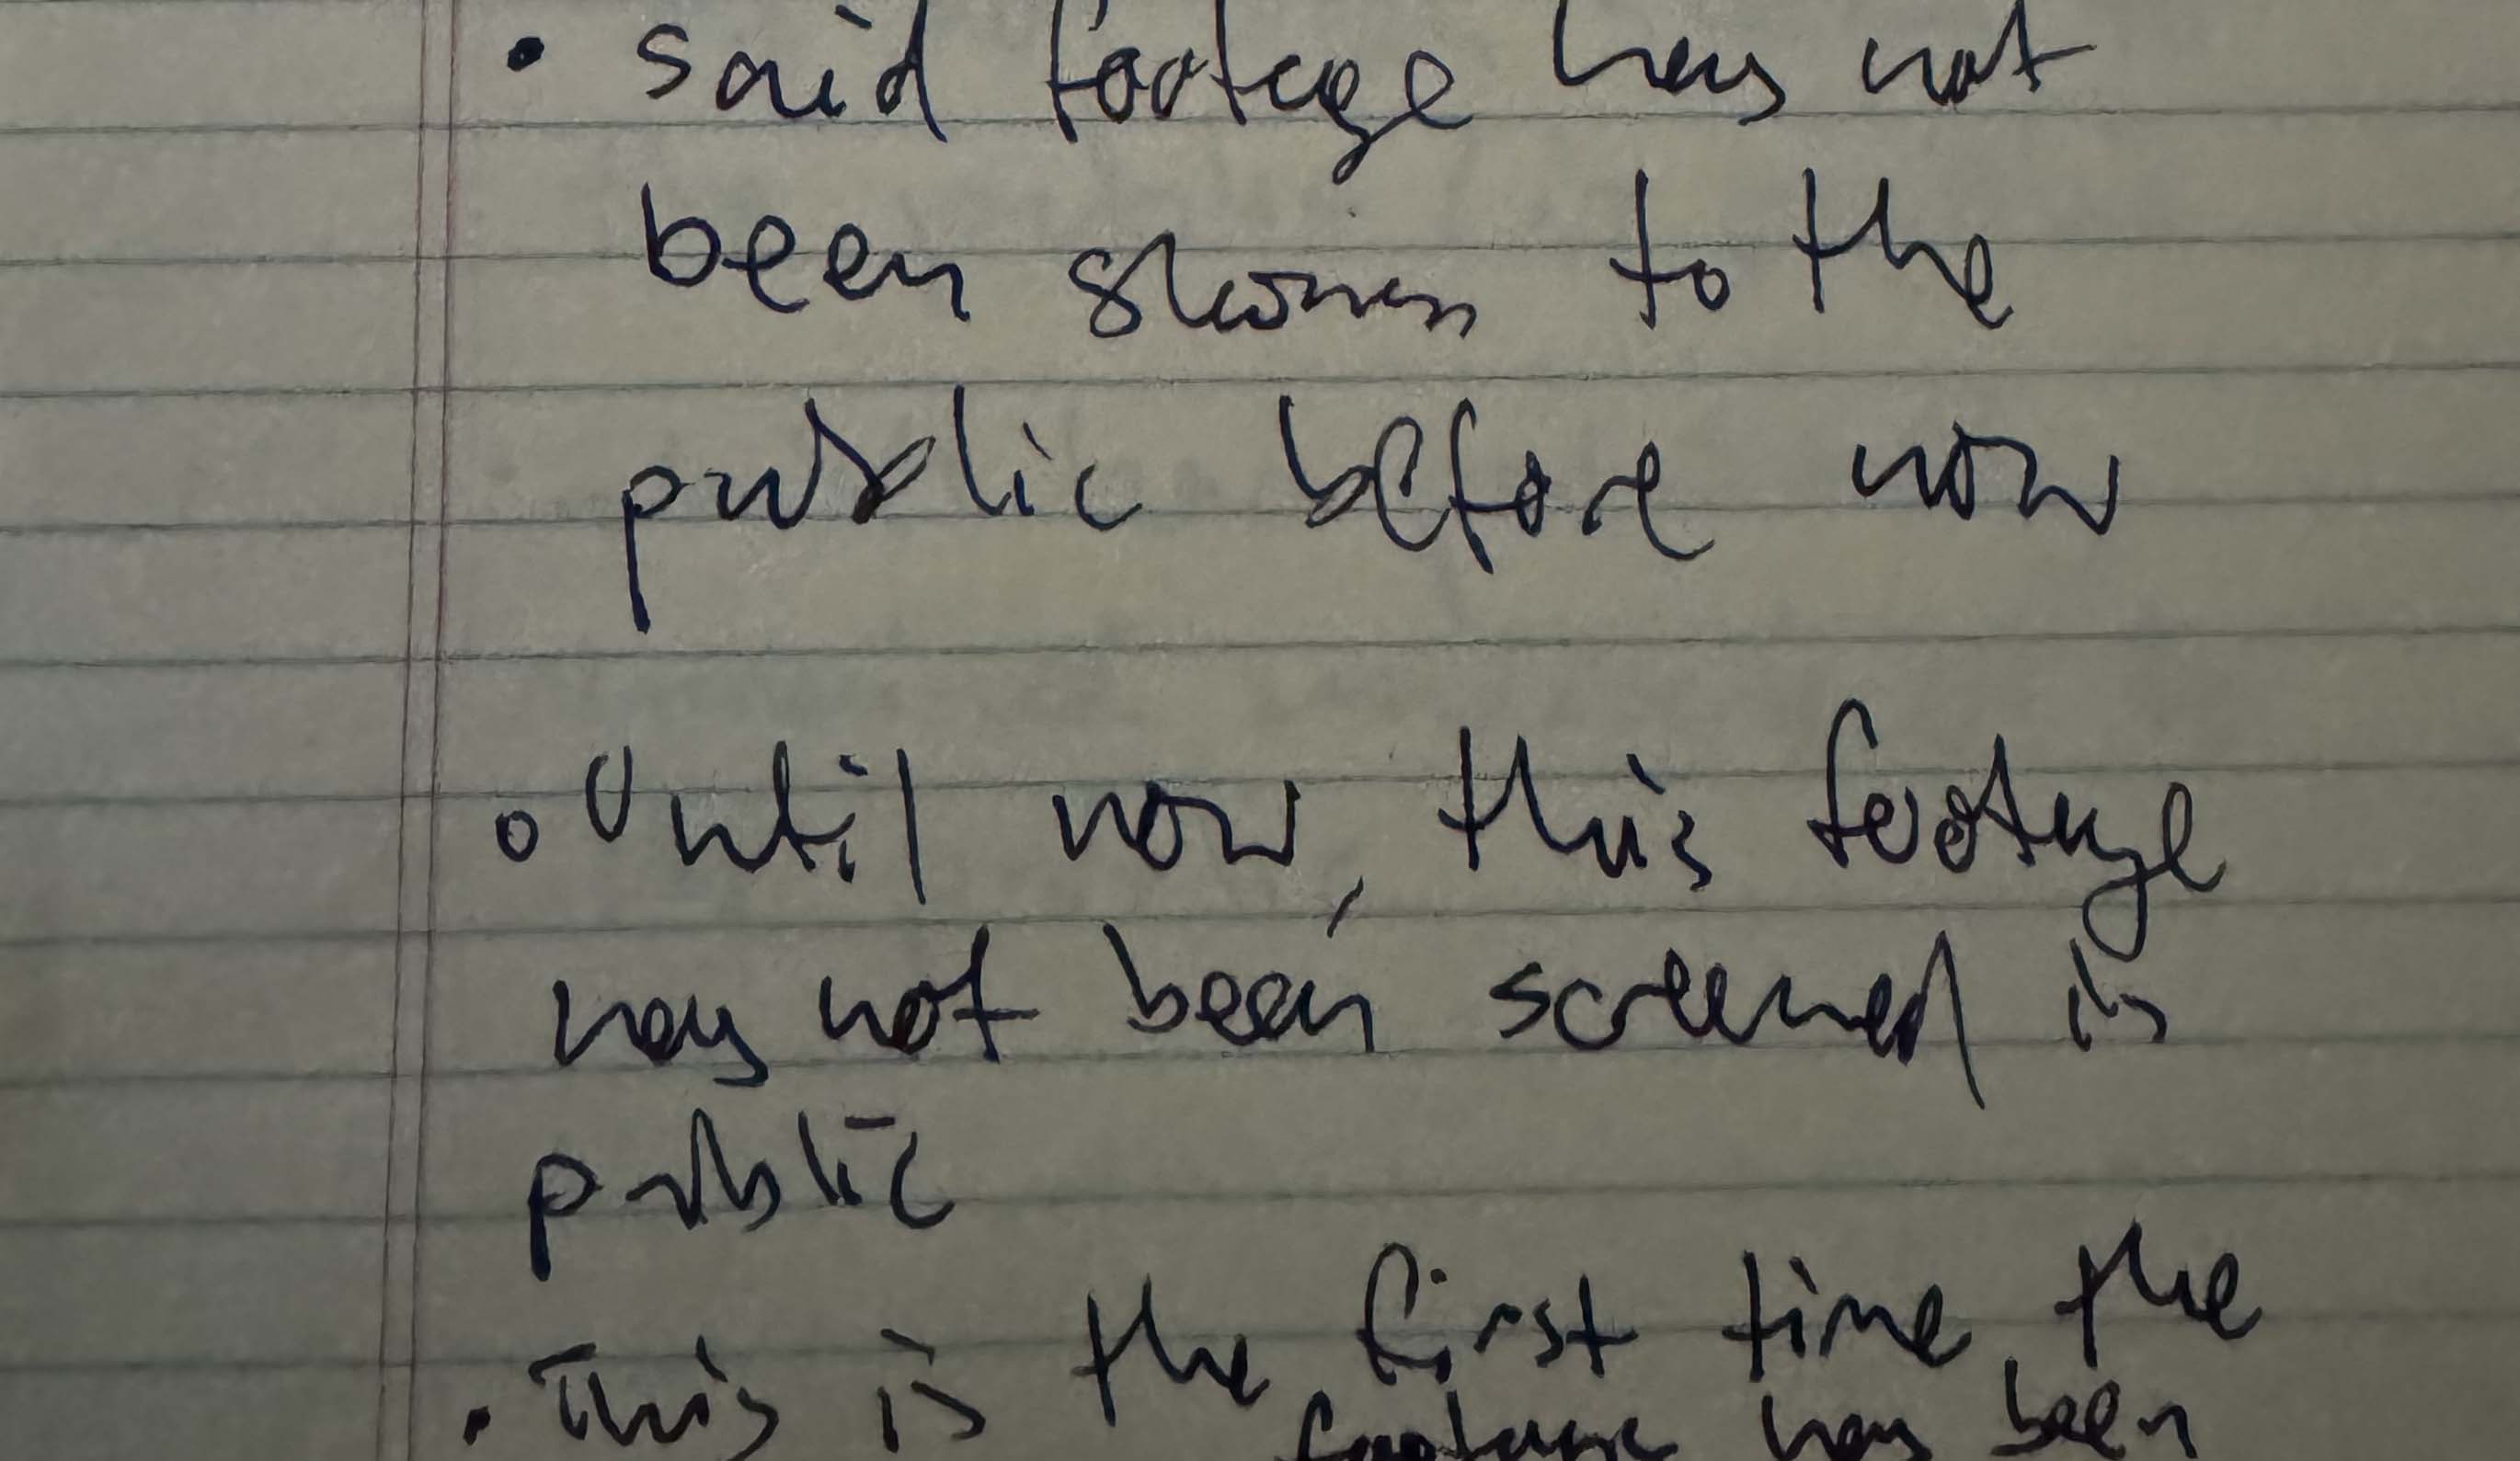 • said footage has not
been shown to the
public before now
• Until now, this footage
has not been screened in
public
• This is the first time the
footage has been